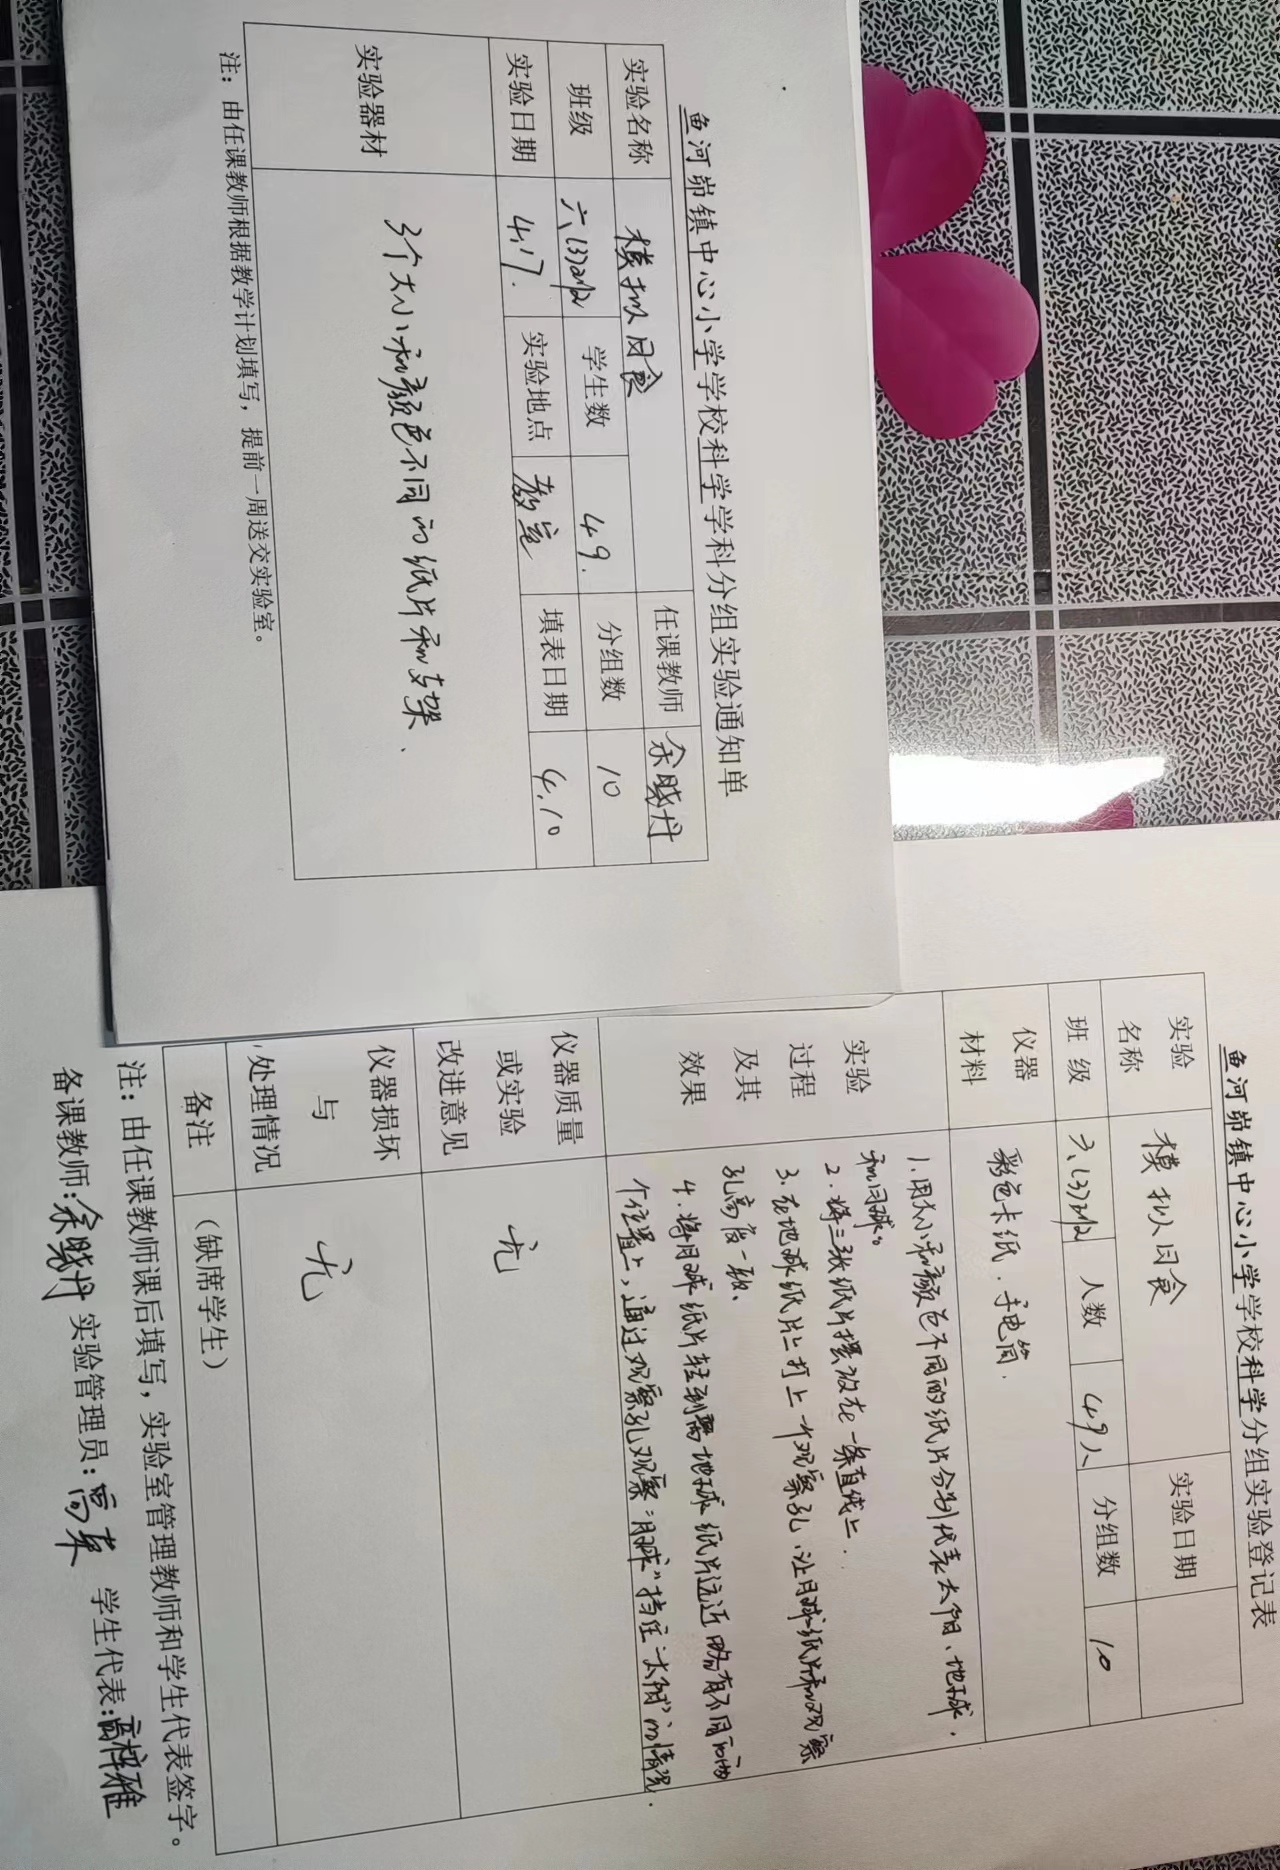 鱼河峁镇中心小学学校科学学科分组实验通知单
实验名称 模拟日食 任课教师 余晓丹
班级 六(3)班 学生数 49. 分组数 10
实验日期 4.17. 实验地点 教室 填表日期 4.10
实验器材 3个大小和颜色不同的纸片和支架、
注：由任课教师根据教学计划填写，提前一周送交实验室。
鱼河峁镇中心小学学校科学分组实验登记表
实验名称 模拟日食 实验日期
班 级 六(3)班 人数 49人 分组数 10
仪器材料 彩色卡纸．手电筒．
实验过程及其效果
1.用大小和颜色不同的纸片分别代表太阳、地球、
和月球。
2.将三张纸片摆放在一条直线上．
3.在地球纸片上打上一个观察孔，让月球纸片和观察
孔高度一致、
4.将月球纸片移到离地球纸片远近略有不同的两
个位置上，通过观察孔观察"月球"挡住"太阳"的情况．
仪器质量或实验改进意见 无
仪器损坏与处理情况 无
备注 （缺席学生）
注：由任课教师课后填写，实验室管理教师和学生代表签字。
备课教师:余晓丹 实验管理员: 学生代表:高梓雅